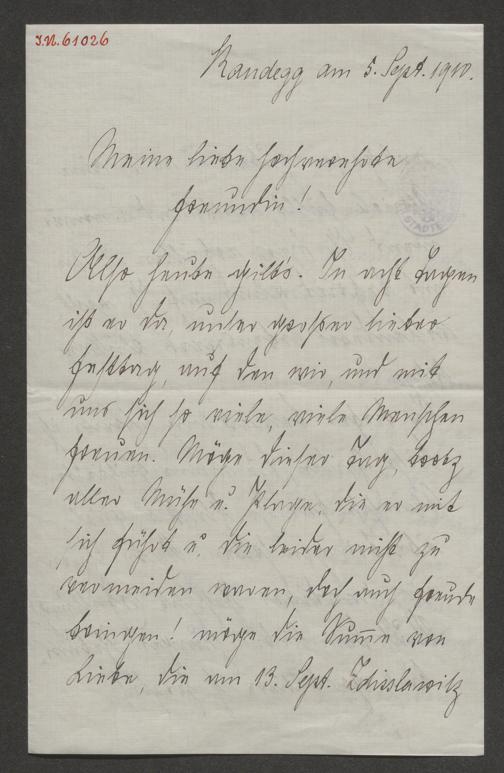 I.N. 61026
Randegg am 5. Sept. 1910.
Meine liebe hochverehrte
Freundin!
Also heute gilt's. In acht Tagen
ist er da, unser großer lieber
Festtag, auf den wir, und mit
uns sich so viele, viele Menschen
freuen. Möge dieser Tag, trotz
aller Mühe u. Plage, die er mit
sich führt u. die leider nicht zu
vermeiden waren, doch auch Freude
bringen! möge die Summe von
Liebe, die am 13. Sept. Zdisslawitz